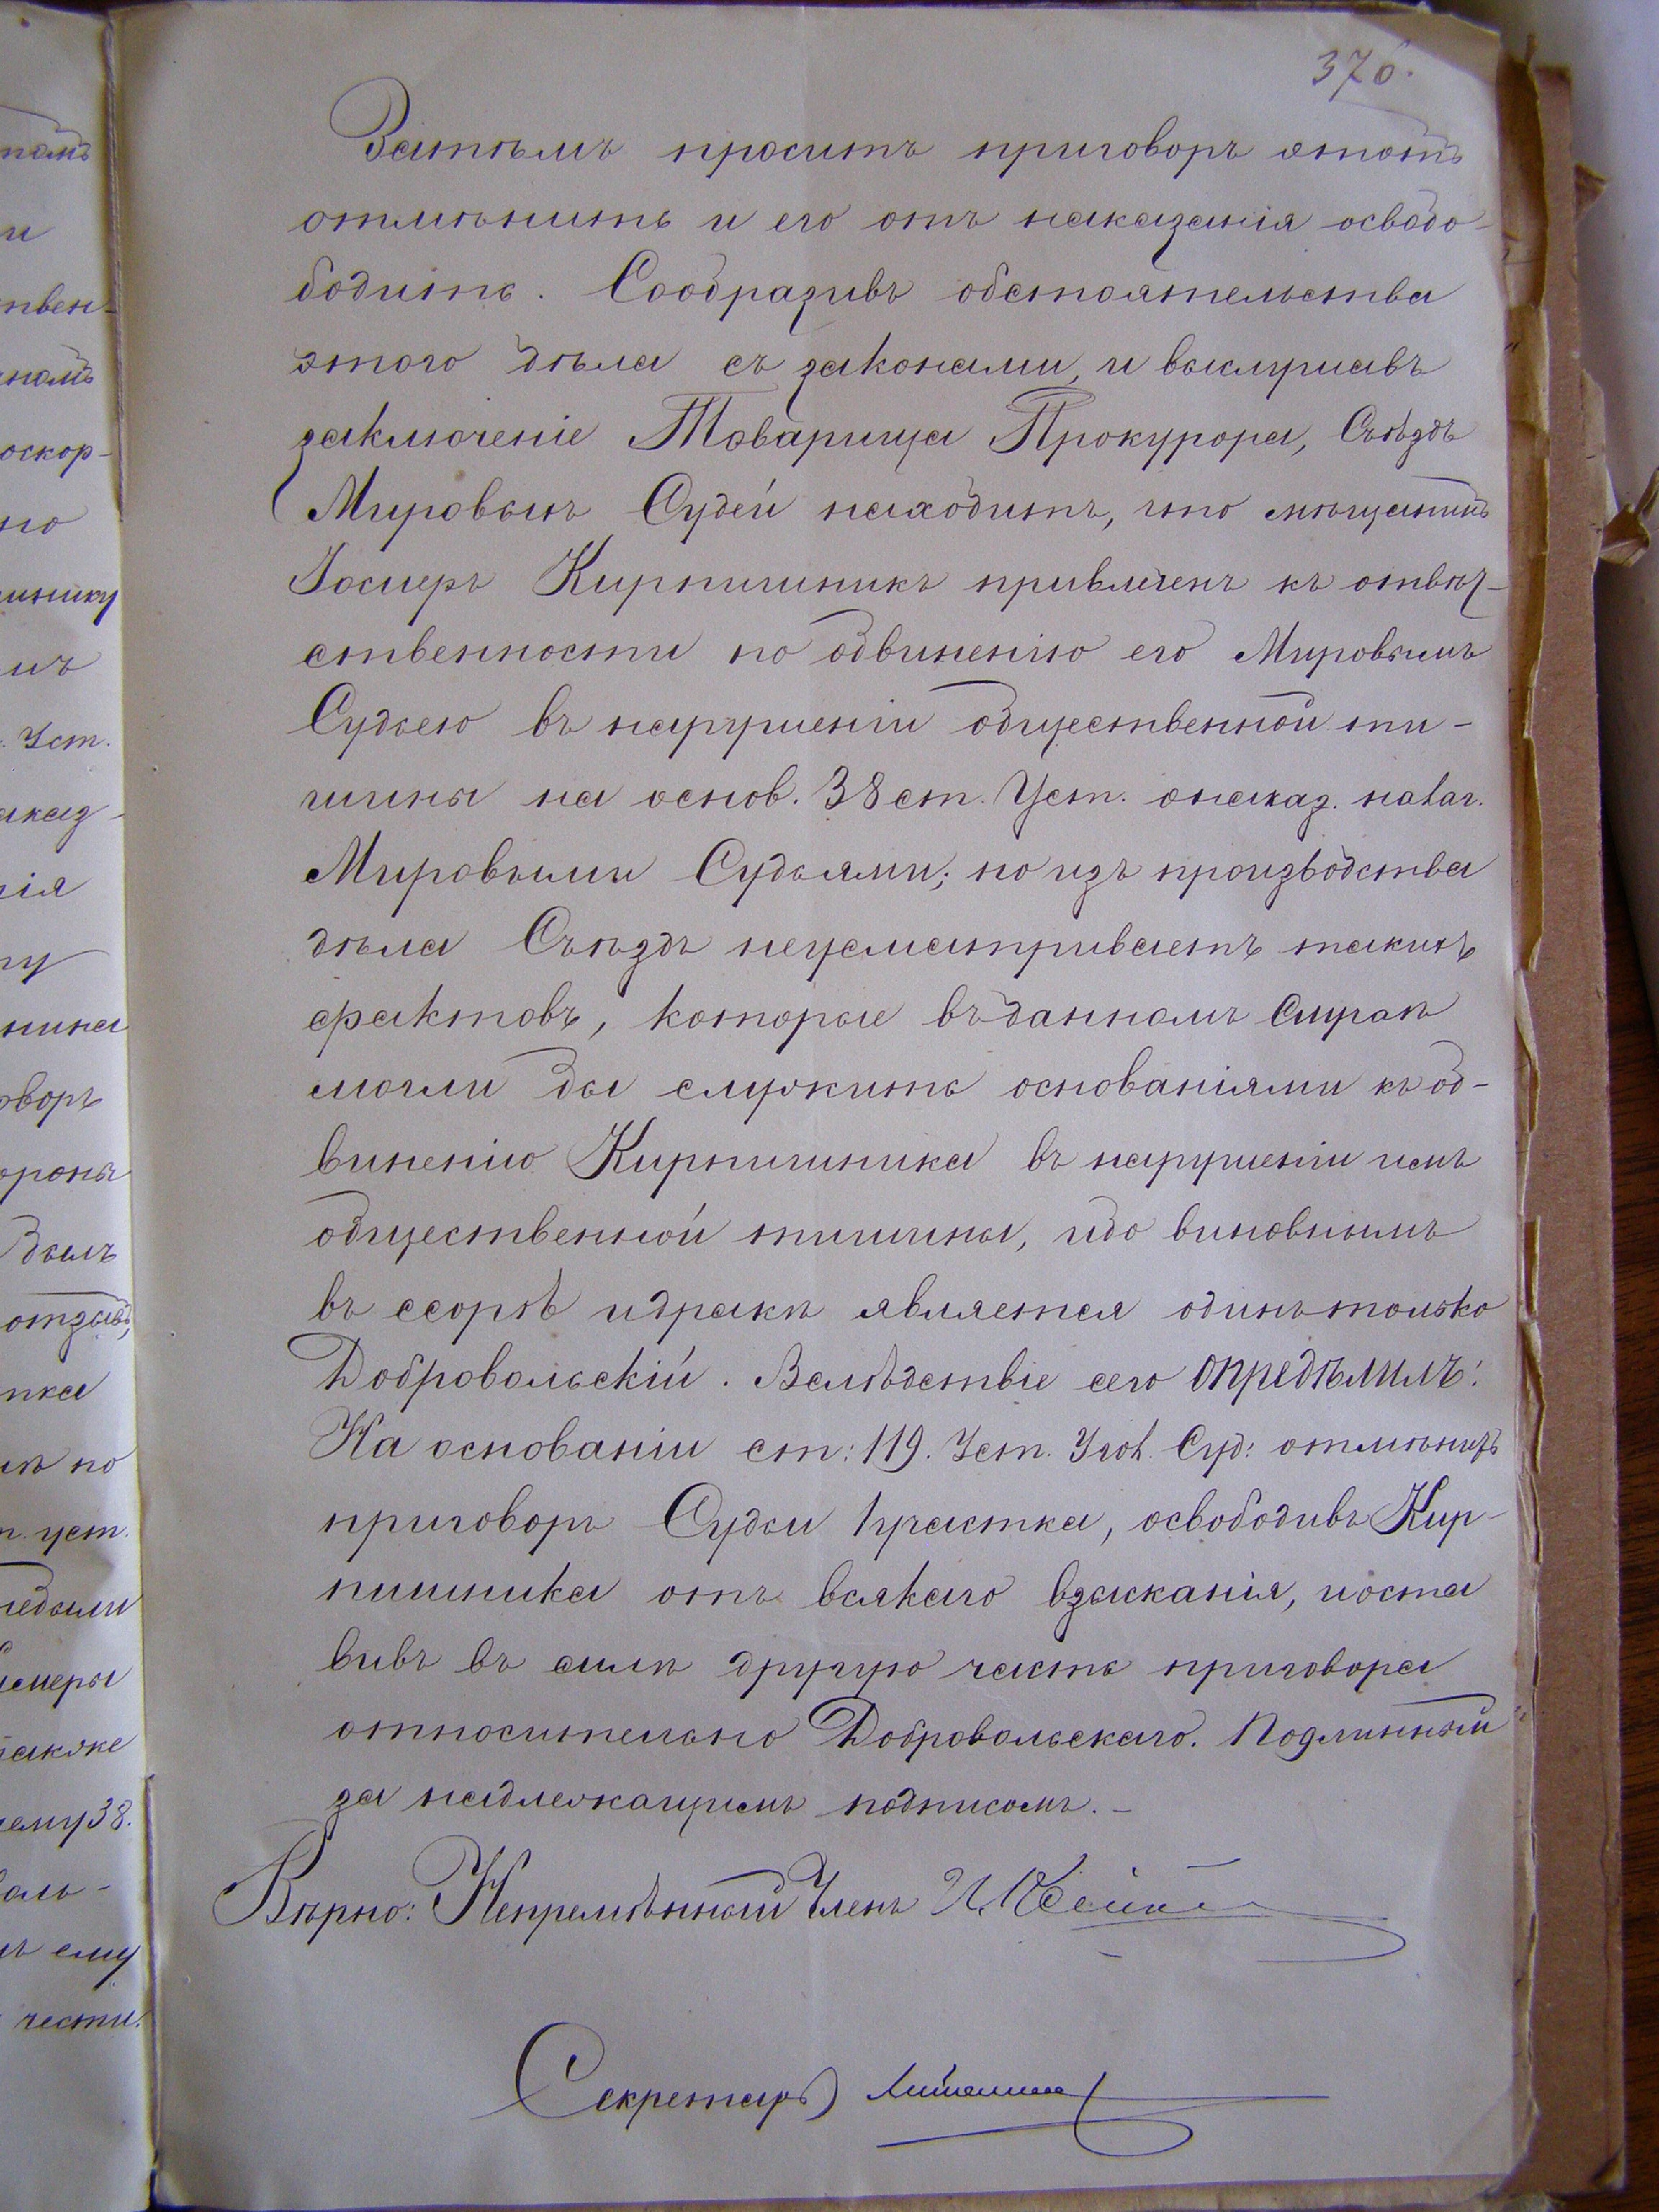 376.
намъ
Затѣмъ проситъ приговоръ этотъ
и
отмѣнить и его отъ наказанія освобо-
бодить. Сообразивъ обстоятельства
твен-
этого дѣла съ законами, и выслушавъ
заключеніе Товарища Прокурора, Съѣздъ
оскор-
Мировыхъ Судей находитъ, что мѣщанинъ
но
Іосиеръ Кирпишникъ привлеченъ къ отвѣт-
ственности по обвиненію его Мировымъ
Судьею въ нарушеніи общественной ти-
. Уст.
шины на основ. 38 ст. Уст. о наказ. налаг.
аказ-
Мировыми Судьями; но изъ производства
нія
дѣла Съѣздъ неусматриваетъ такихъ
фактовъ, которые въ данномъ случаѣ
нина
могли бы служить основаніями къ об-
оворъ
виненію Кирпишника въ нарушеніи имъ
ороны
общественной тишины, ибо виновнымъ
былъ
въ ссорѣ и дракѣ является одинъ только
отзывъ,
Добровольскій. Вслѣдствіе сего опредѣлилъ:
На основаніи ст: 119. Уст. Угол. Суд: отмѣнить
по
приговоръ Судьи 1 участка, освободивъ Кир-
уст.
пишника отъ всякаго взысканія, и оста
небыли
вивъ въ силѣ другую часть приговора
относительно Добровольскаго. Подлинный
также
за надлежащимъ подписомъ. —
ему 38.
Вѣрно: Непремѣнный Членъ
оль-
ъ ему
чести.
Секретарь